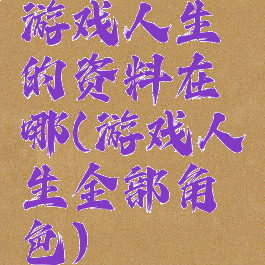 游戏人生
的资料在
哪(游戏人
生全部角
色)